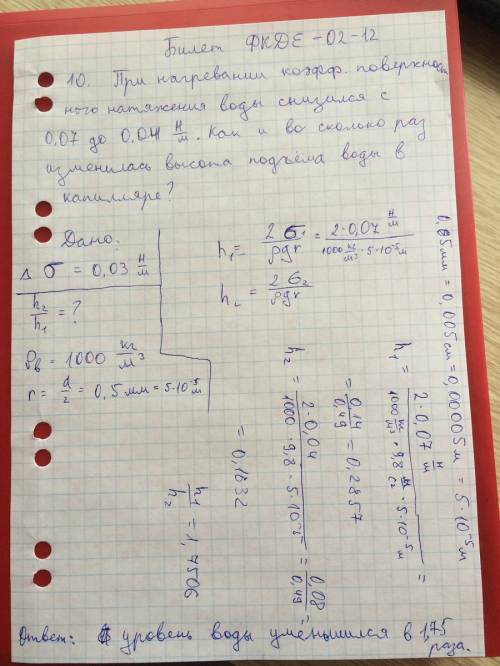 Билет ФКДЕ-02-12
10. При нагревании коэфф. поверхност
ного натяжения воды снизился с
0,07 до 0,04 Н/м. Как и во сколько раз
изменилась высота подъёма воды в
капилляре?
Дано:
Δ σ = 0,03 Н/м
h₂/h₁ = ?
ρв = 1000 кг/м³
r = d/2 = 0,5 мм = 5·10⁻⁵ м
h₁ = 2σ₁/ρgr = 2·0,07 Н/м / 1000 кг/м³ · 5·10⁻⁵ м
h₂ = 2σ₂/ρgr
0,05 мм = 0,005 см = 0,00005 м = 5·10⁻⁵ м
h₁ = 2·0,07 Н/м / 1000 кг/м³ · 9,8 м/с² · 5·10⁻⁵ м =
= 0,14/0,49 = 0,2857
h₂ = 2·0,04 / 1000 · 9,8 · 5·10⁻⁵ = 0,08/0,49 =
= 0,1632
h₁/h₂ = 1,7506
Ответ: уровень воды уменьшился в 1,75
раза.